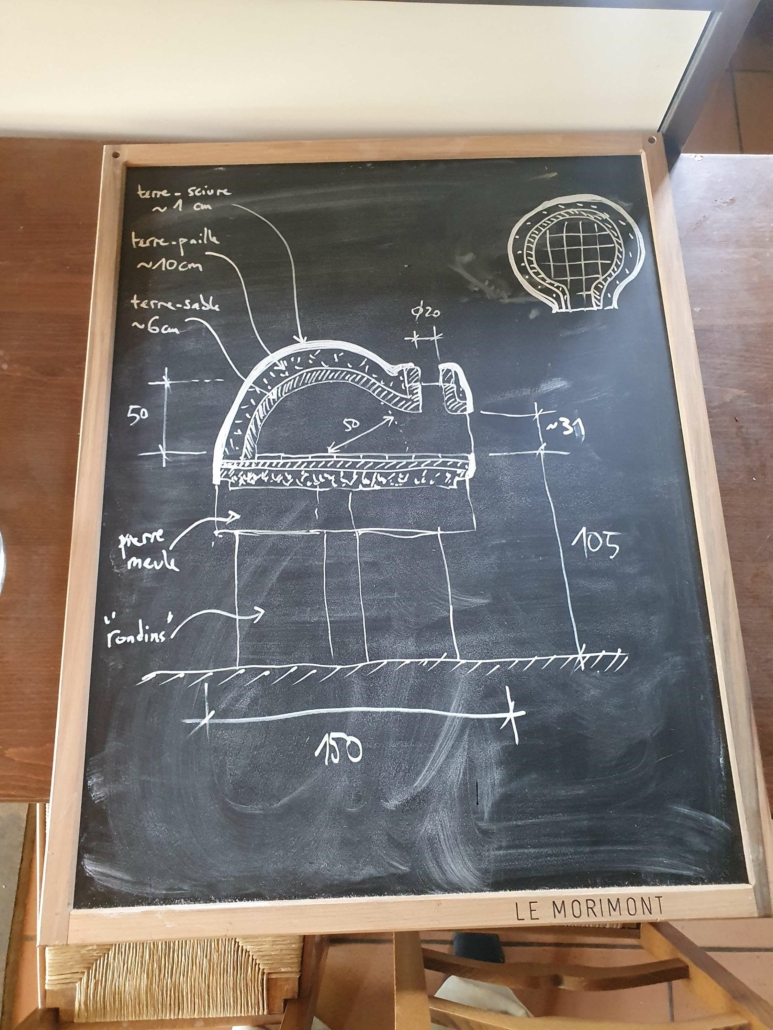 terre-sciure
~1 cm
terre-paille
~10cm
terre-sable
~6cm
ϕ20
50
50
~31
pierre
meule
105
"rondins"
150
LE MORIMONT